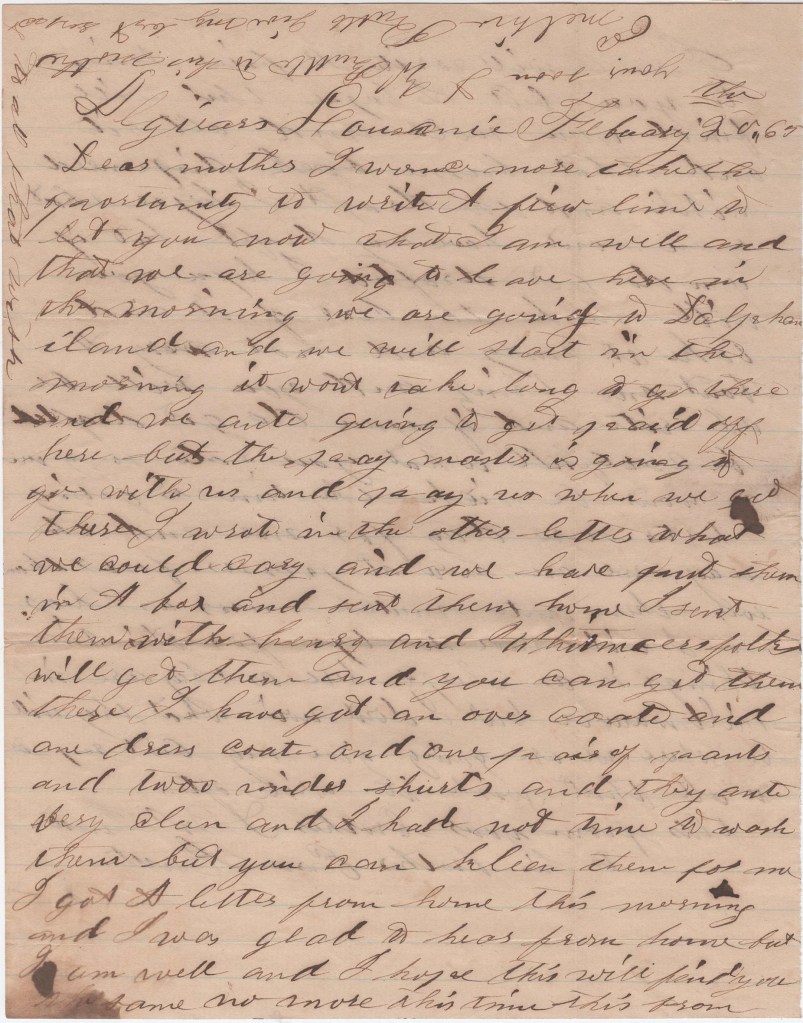 the
Algiears Lousanie Febuary 20, 65
Dear mother I wonce more take the
oportunity to write A few lines to
let you now that I am well and
that we are going to leave here in
the morning we are going to Dalphan
iland and we will start in the
morning it wont take long to go there
and we ante going to get paid off
here but the pay master is going to
go with us and pay us when we get
there I wrote in the other letter what
we could cary and we have put them
in A box and sent them home I sent
them with henry and folks
will get them and you can get them
there I have got an over coate and
one dress coate and one pair of pants
and twoo under shurts and they ante
very clean and I had not time to wash
them but you can klien them for me
I got A letter from home this morning
and I was glad to hear from home but
I am well and I hope this will find you
the same no more this time this from
yours son J W Tuttle to his mother
Tuttle Give my best respect
to all that wish